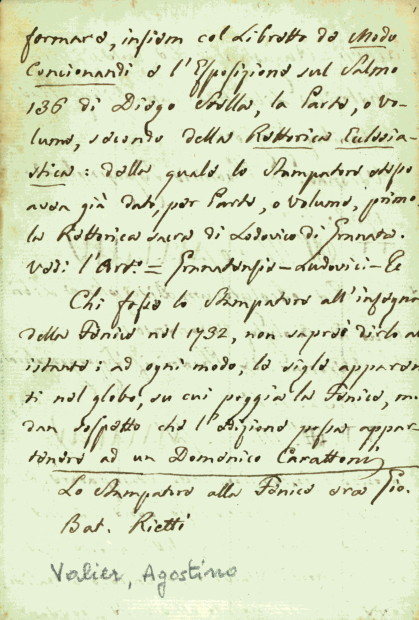 formare, insiem col Libretto de Modo
Concionandi e l'Esposizione sul Salmo
136 di Diego Stella, la Parte, o vo-
lume, secondo della Rettorica Ecclesia-
stica: della quale lo Stampatore stesso
avea già dato, per Parte, o volume, primo
la Rettorica sacra di Lodovico di Granata.
Vedi l'Art.° = Granatensis - Ludovici - Ec
Chi fosse lo Stampatore all'insegna
della Fenice nel 1732, non saprei dirlo a
istante: ad ogni modo, le sigle apparen
ti nel globo, su cui poggia la Fenice, m
dan sospetto che l'edizione possa appar-
tenere ad un Domenico Carattoni
Lo Stampatore alla Fenice era Gio.
Bat. Rietti
Valier, Agostino